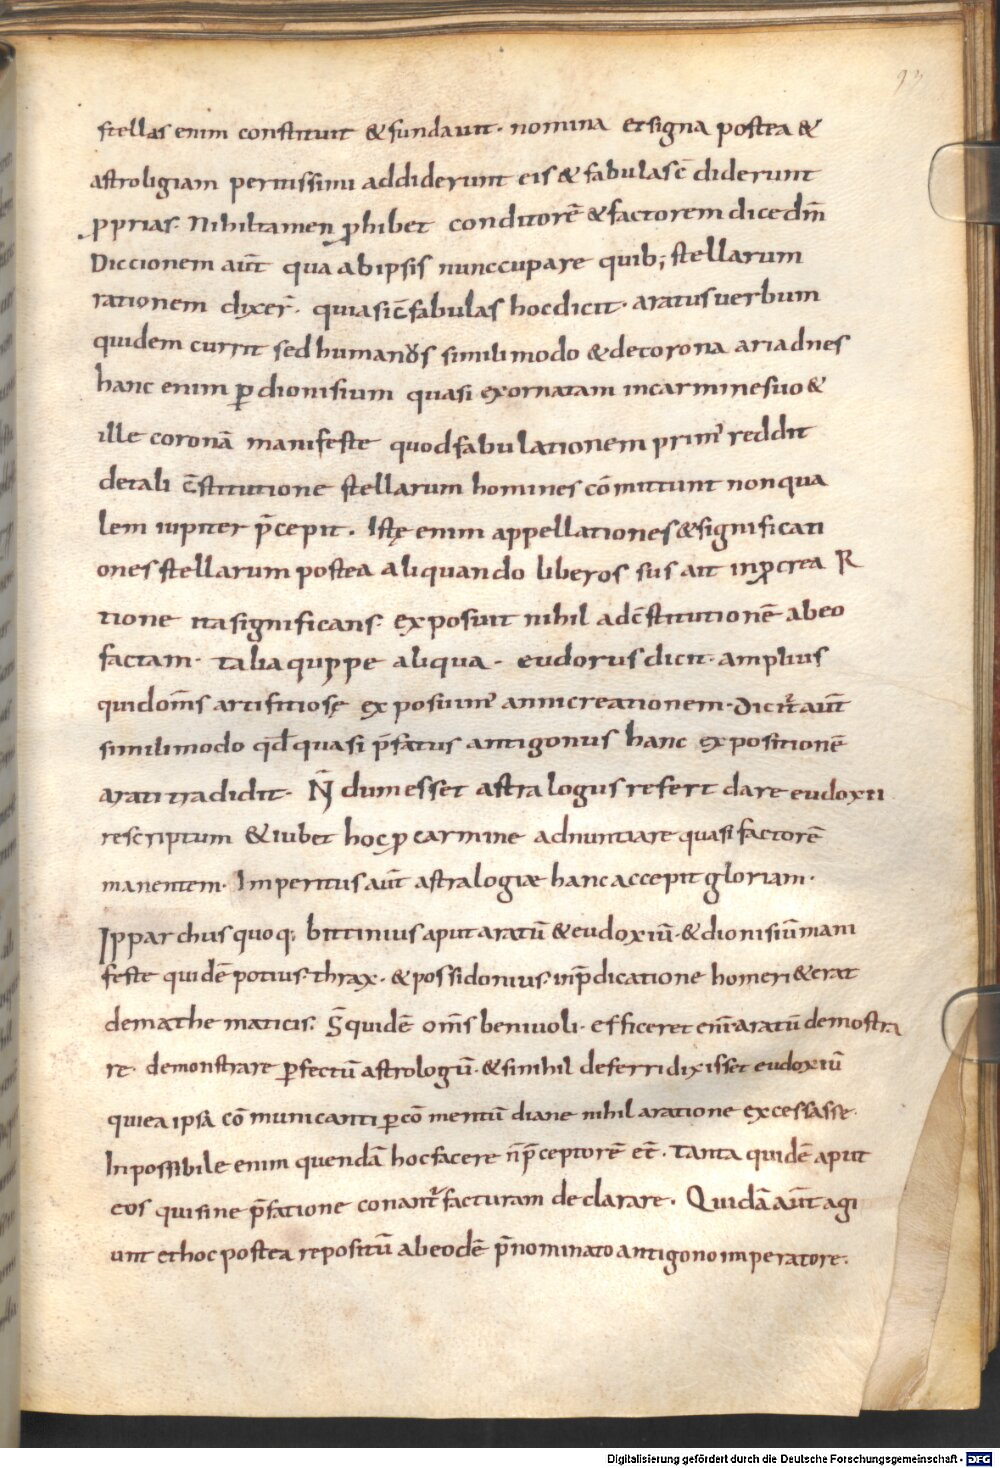 93
stellas enim constituit & fundauit. nomina et signa postea &
astroligiam peritissimi addiderunt eis & fabulas c̄diderunt
ꝓprias. Nihil tamen ꝓhibet conditorē & factorem dice dm̄
Diccionem aūt qua ab ipsis nunccupare quib; stellarum
rationem dixer̄. quia si c̄fabulas hoc dicit. aratus uerbum
quidem currit sed humanos simili modo & de corona ariadnes
hanc enim ꝑ dionisium quasi exornatam in carmine suo &
ille coronā manifeste quod fabulationem prim' reddit
de tali c̄stitutione stellarum homines cōmittunt non qua
lem iupiter p̄cepit. Istę enim appellationes & significati
ones stellarum postea aliquando liberos suos ait in ꝓcrea R
tione ita significans. exposuit nihil ad c̄stitutionē ab eo
factam. talia quippe aliqua. eudorus dicit. amplius
qui dom̄s artifitiosę exposuim' anni creationem. Dicit̄ aūt
simili modo qd̄ quasi p̄fatus antigonus hanc expositionē
arati tradidit. N̄ dum esset astralogus refert dare eudoxii
rescriptum & iubet hoc ꝓ carmine adnuntiare quasi factorē
manentem. Imperitus aūt astralogiæ hanc accepit gloriam.
Ipparchus quoq; bittinius aput aratū & eudoxiū. & dionisiū mani
feste quidē potius. thrax. & possidonius. in p̄dicatione homeri & erat
de mathematicis. S̄ quidē om̄s beniuoli. efficeret eni aratū demostra
re. demonstrare ꝑfectū astrologū. & si nihil deferri dixisset eudoxiū
quiea ipsā cōmunicanti ꝑ cōmentū diane nihil a ratione excessasse.
Inpossibile enim quendā hoc facere n̄ p̄ceptorē et̄. Tanta quidē aput
eos qui sine p̄fatione conant̄ facturam declarare. Quidā aūt agi
unt et hoc postea repositū ab eodē p̄nominato antigono imperatore.
Digitalisierung gefördert durch die Deutsche Forschungsgemeinschaft - DFG